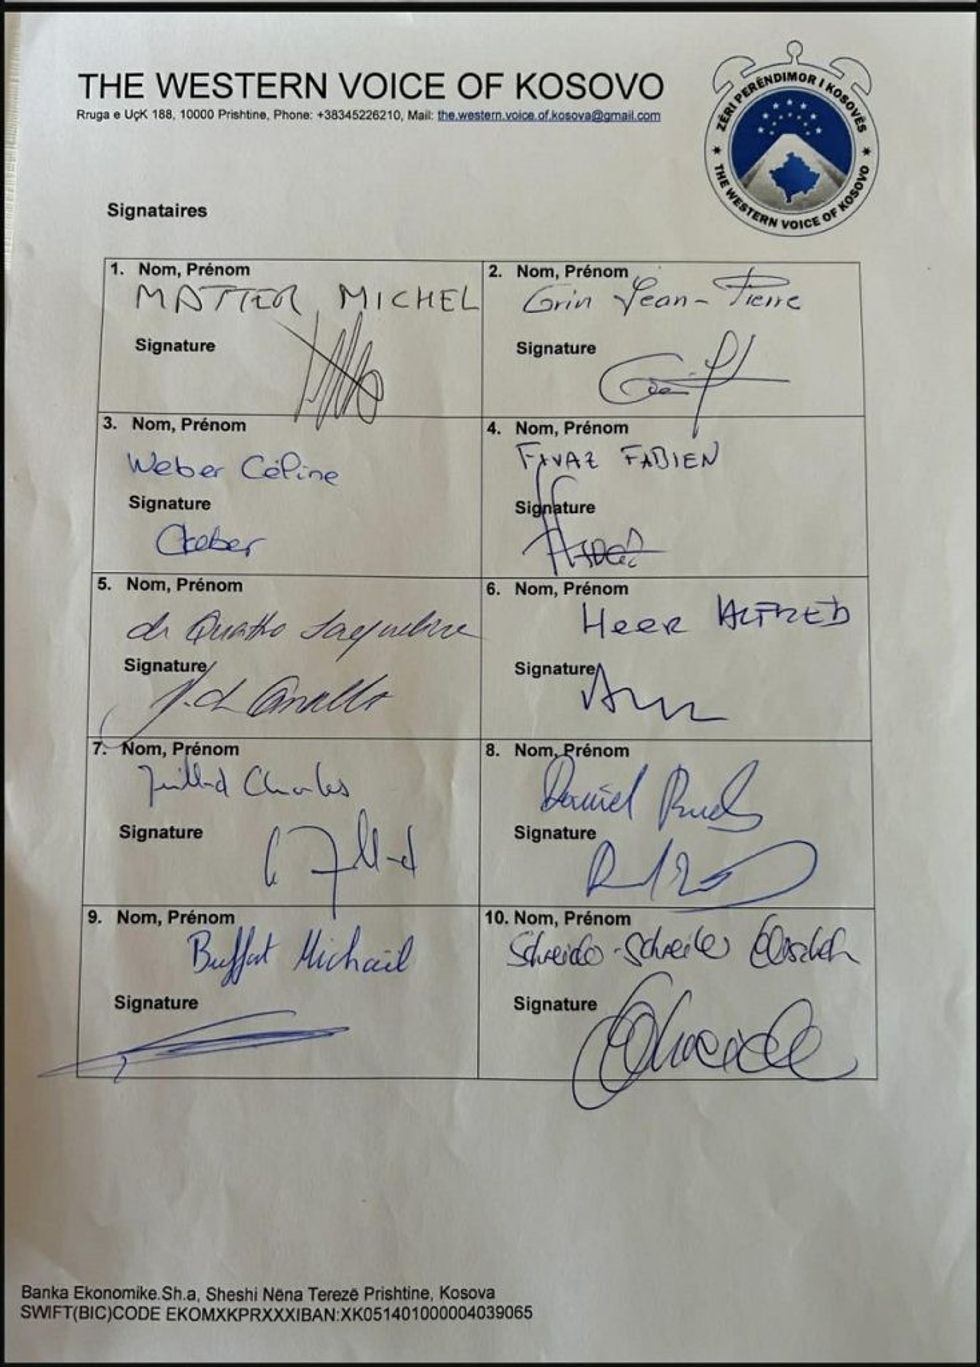 THE WESTERN VOICE OF KOSOVO
Rruga e UçK 188, 10000 Prishtine, Phone: +38345226210, Mail: the.western.voice.of.kosova@gmail.com
ZËRI PERËNDIMOR I KOSOVËS
THE WESTERN VOICE OF KOSOVO
Signataires
1. Nom, Prénom
MATTER, MICHEL
Signature
2. Nom, Prénom
Grin Jean-Pierre
Signature
3. Nom, Prénom
Weber Céline
Signature
CWeber
4. Nom, Prénom
FIVAZ FABIEN
Signature
5. Nom, Prénom
de Quattro Jacqueline
Signature
6. Nom, Prénom
Heer ALFRED
Signature
7. Nom, Prénom
Juillard Charles
Signature
8. Nom, Prénom
Daniel Ruch
Signature
9. Nom, Prénom
Buffat Michaël
Signature
10. Nom, Prénom
Elisabeth
Signature
Banka Ekonomike.Sh.a, Sheshi Nëna Terezë Prishtine, Kosova
SWIFT(BIC)CODE EKOMXKPRXXXIBAN:XK051401000004039065